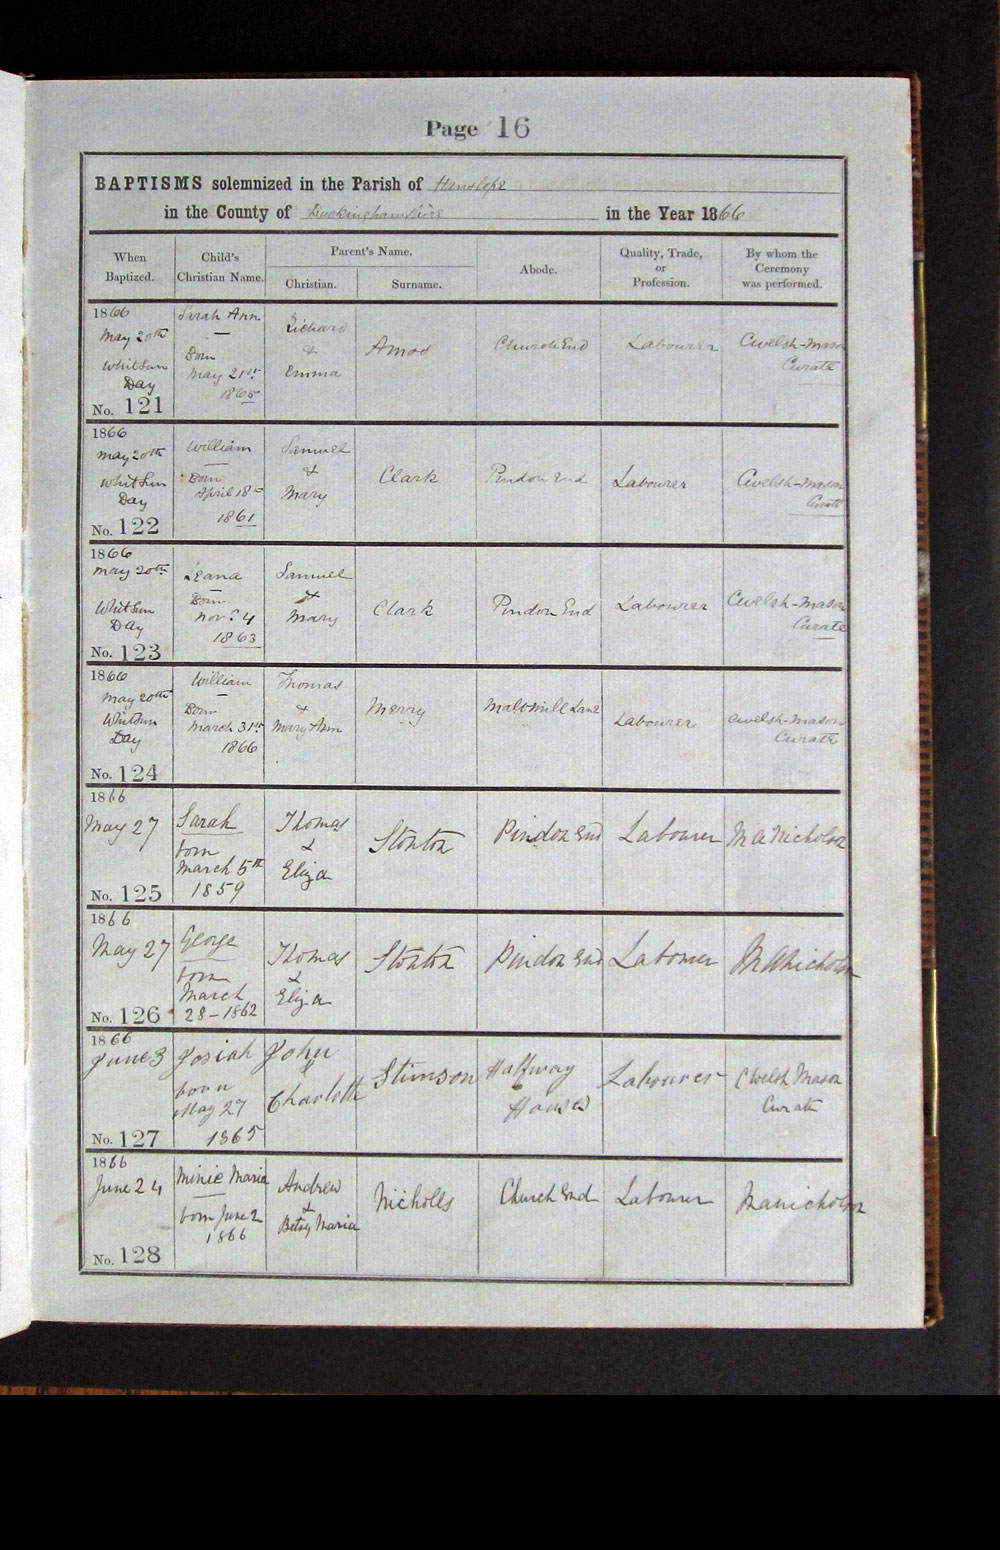 Page 16
BAPTISMS solemnized in the Parish of Hanslope
in the County of Buckinghamshire in the Year 1866
When Baptized. Child's Christian Name. Parent's Name. Abode. Quality, Trade, or Profession. By whom the Ceremony was performed.
Christian. Surname.
1866 Sarah Ann Richard
May 20th — & Amos Church End Labourer Cwelsh-Mason
Whitsun Born Emma Curate
Day May 21st
1865
No. 121
1866 William Samuel
May 20th — & Clark Pindon End Labourer Cwelsh-Mason
Whitsun Born Mary Curate
Day April 18th
1861
No. 122
1866
May 20th Leana Samuel
Whitsun Born & Clark Pindon End Labourer Cwelsh-Mason
Day Novr 4 Mary Curate
1863
No. 123
1866 William Thomas
May 20th — & Merry Malt Mill Lane Labourer Cwelsh-Mason
Whitsun Born Mary Ann Curate
Day March 31st
1866
No. 124
1866
May 27 Sarah Thomas Stonton Pindon End Labourer M A Nicholson
born &
March 5th Eliza
1859
No. 125
1866
May 27 George Thomas Stonton Pindon End Labourer M A Nicholson
born &
March Eliza
28-1862
No. 126
1866
June 3 Josiah John Stimson Halfway Labourer C Welsh Mason
born & Houses Curate
May 27 Charlotte
1865
No. 127
1866
June 24 Minie Maria Andrew Nicholls Church End Labourer M A Nicholson
born June 2 &
1866 Betsy Maria
No. 128